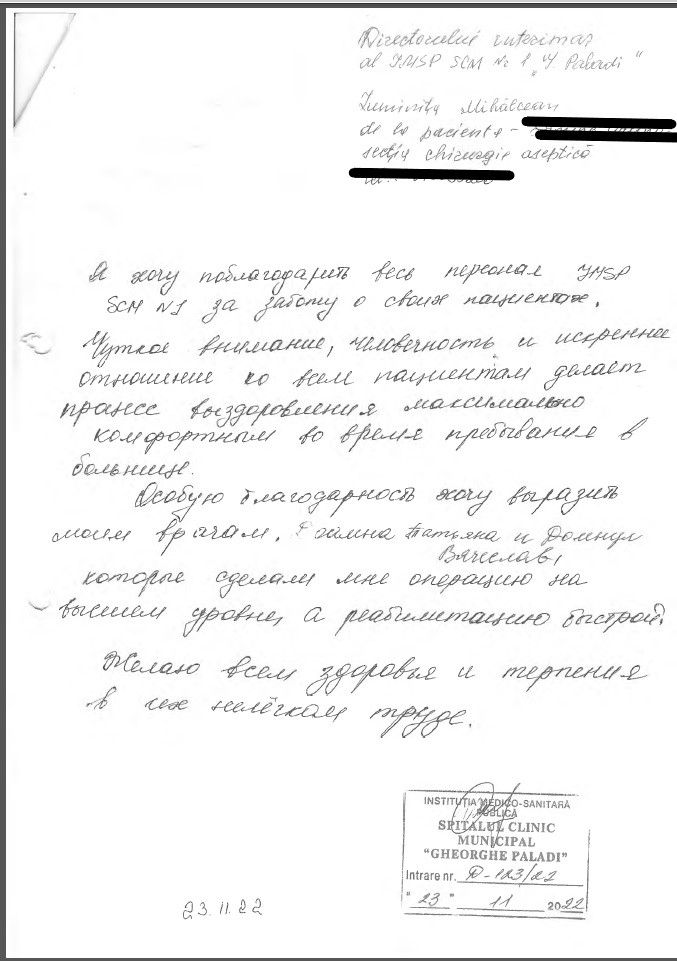 Directorului interimar
al IMSP SCM Nr 1 „G. Paladi"
Luminița Mihălcean
de la pacienta -
secția chirurgie aseptică
Я хочу поблагодарить весь персонал IMSP
SCM N1 за заботу о своих пациентах.
Чуткое внимание, человечность и искреннее
отношение ко всем пациентам делает
процесс выздоровления максимально
комфортным во время пребывания в
больнице.
Особую благодарность хочу выразить
моим врачам. Татьяна и Домнул
Вячеслав,
которые сделали мне операцию на
высшем уровне, а реабилитацию быстрой.
Желаю всем здоровья и терпения
в их нелёгком труде.
INSTITUȚIA MEDICO-SANITARĂ
PUBLICĂ
SPITALUL CLINIC
MUNICIPAL
“GHEORGHE PALADI”
Intrare nr. D-123/22
“ 23 ” 11 2022
23.11.22